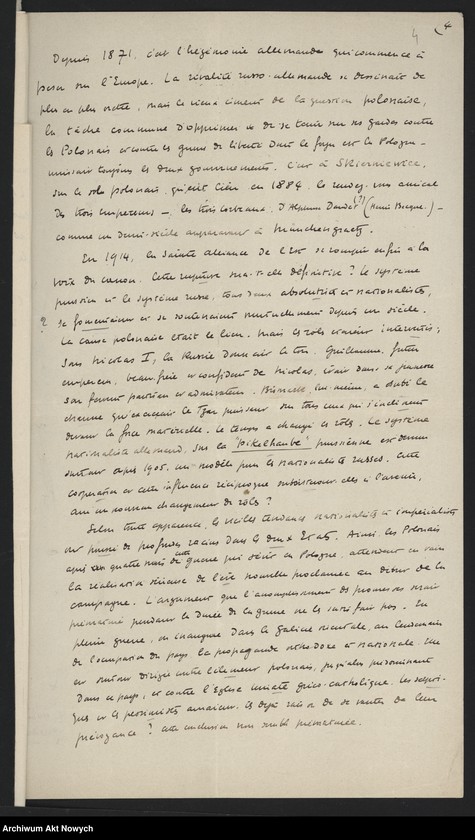 4
Depuis 1871, c'est l'hégémonie allemande qui commence à
peser sur l'Europe. La rivalité russo-allemande se dessinait de
plus en plus nette, mais le vieux ciment de la question polonaise,
la tâche commune d'opprimer et de se tenir sur ses gardes contre
les Polonais et contre les germes de liberté dont le foyer est la Pologne
unissait toujours les deux gouvernements. C'est à Skierniewice,
sur le sol polonais, qu'eut lieu en 1884, le rendez-vous amical
des trois empereurs —, les trois corbeaux, d'Alphonse Daudet (?) (Henri Becque.) —
comme un demi-siècle auparavant à Münchengraetz.
En 1914, la Sainte alliance de l'Est se rompit enfin à la
voix du canon. Cette rupture sera-t-elle définitive? Le système
prussien et le système russe, tous deux absolutistes et nationalistes,
? se fomentaient et se soutenaient mutuellement depuis un siècle.
La cause polonaise était le lien. Mais les rôles étaient intervertis;
sous Nicolas I, la Russie donnait le ton. Guillaume, futur
empereur, beau-frère et confident de Nicolas, était dans sa jeunesse
son fervent partisan et admirateur. Bismarck, lui-même, a subi le
charme qu'exerçait le Tzar puissant sur tous ceux qui s'inclinent
devant la force matérielle. Le temps a changé les rôles. Le système
nationaliste allemand, sur la "pikelhaube" prussienne est devenu
surtout depuis 1905, un modèle pour les nationalistes russes. Cette
coopération et cette influence réciproque subsisteront-elles à l'avenir,
avec un nouveau changement de rôles?
Selon toute apparence, les vieilles tendances nationalistes et impérialistes
ont poussé de profondes racines dans les deux Etats. Ainsi, les Polonais
après quatre mois de cette guerre qui sévit en Pologne, attendent en vain
la réalisation sérieuse de l'ère nouvelle proclamée au début de la
campagne. L'argument que l'accomplissement des promesses serait
prématuré pendant la durée de la guerre ne les satisfait pas. En
pleine guerre, on inaugure dans la Galicie orientale, au lendemain
de l'occupation du pays, la propagande orthodoxe et nationale. Elle
est surtout dirigée contre l'élément polonais, jusqu'alors prédominant
dans ce pays, et contre l'Eglise uniate gréco-catholique. Les scepti-
ques et les pessimistes auraient-ils déjà raison de se vanter de leur
prévoyance? Cette conclusion nous semble prématurée.
Archiwum Akt Nowych